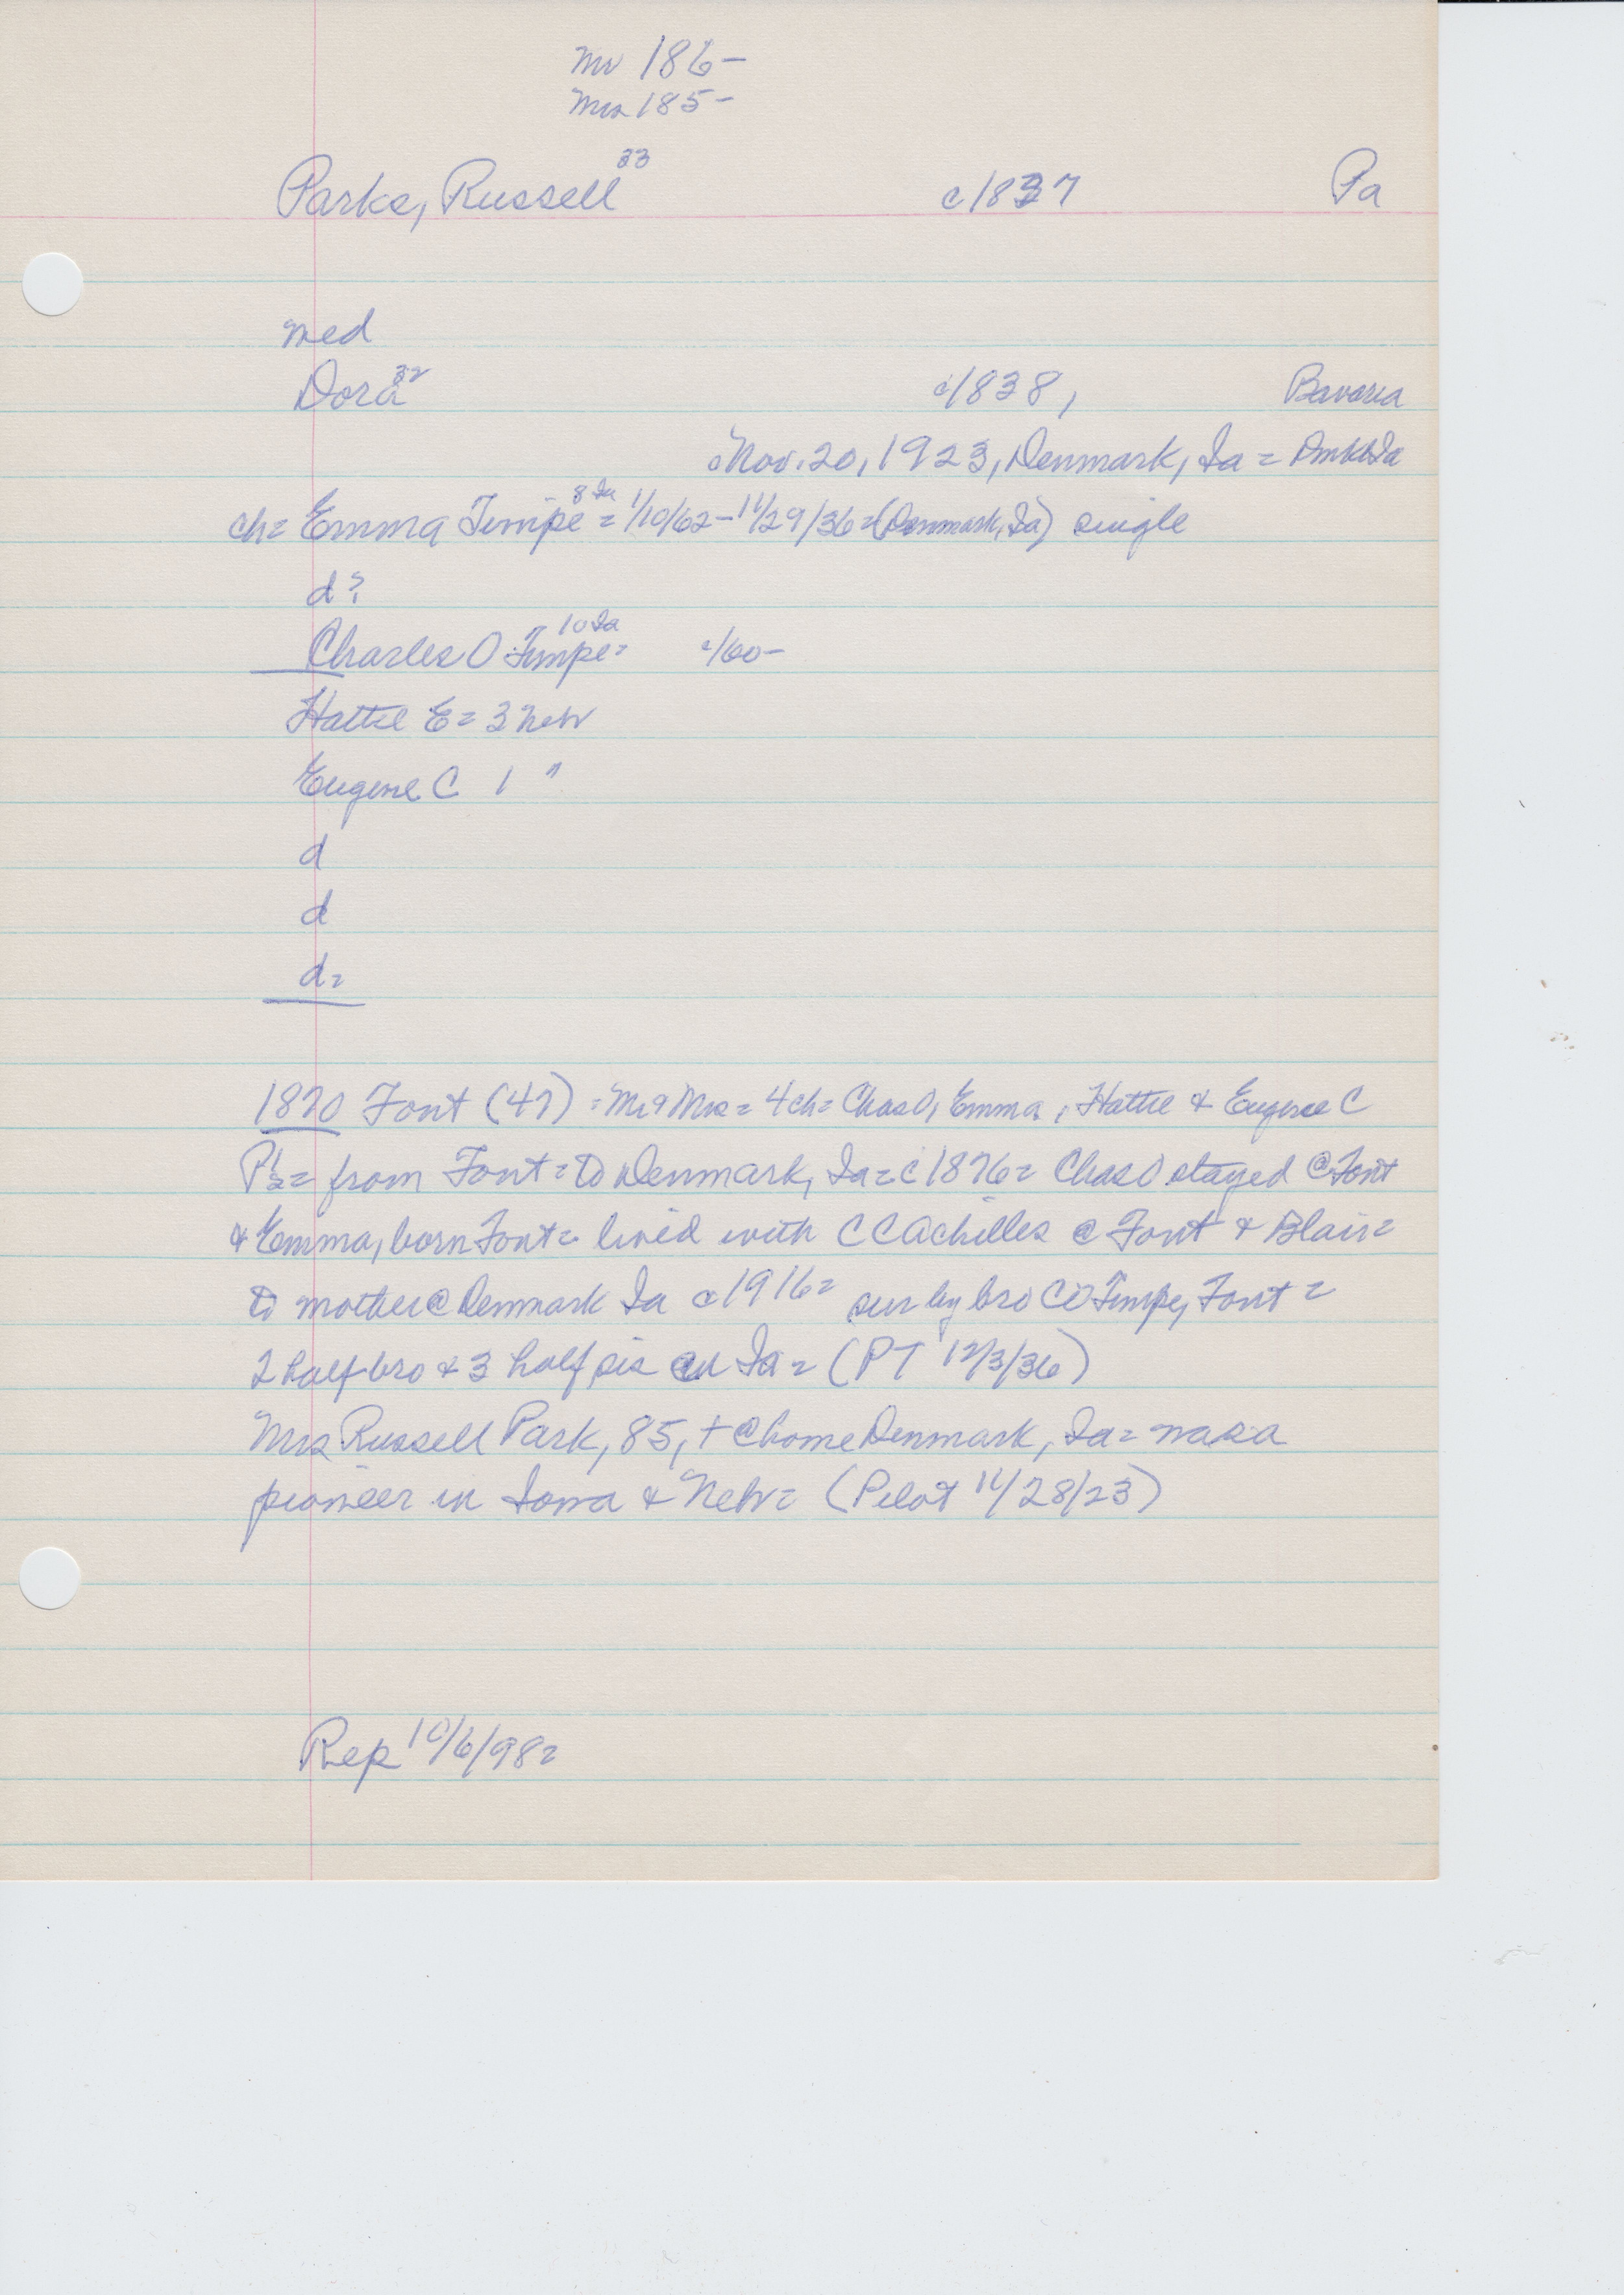 Mr 186-
Mrs 185-
Parks, Russell 33 c1837 Pa
med
Dora 32 c1838, Bavaria
Nov. 20, 1923, Denmark, Ia =
ch= Emma Timpe 8 Ia = 1/10/62 - 11/29/36 = (Denmark, Ia) single
d?
Charles O Timpe 10 Ia = c/60-
Hattie E = 3 Nebr
Eugene C 1 "
d
d
d=
1870 Font (47) = Mr & Mrs = 4 ch = Chas O, Emma, Hattie & Eugene C
P's = from Font = to Denmark, Ia = c 1876 = Chas O stayed @ Font
& Emma, born Font = lived with C C Achilles @ Font & Blair =
to mother @ Denmark Ia c 1916 = sur by bro C O Timpe, Font =
2 half bro & 3 half sis in Ia = (PT 12/3/36)
Mrs Russell Park, 85, + @ home Denmark, Ia = was a
pioneer in Iowa & Nebr = (Pilot 11/28/23)
Rep 10/6/98 =